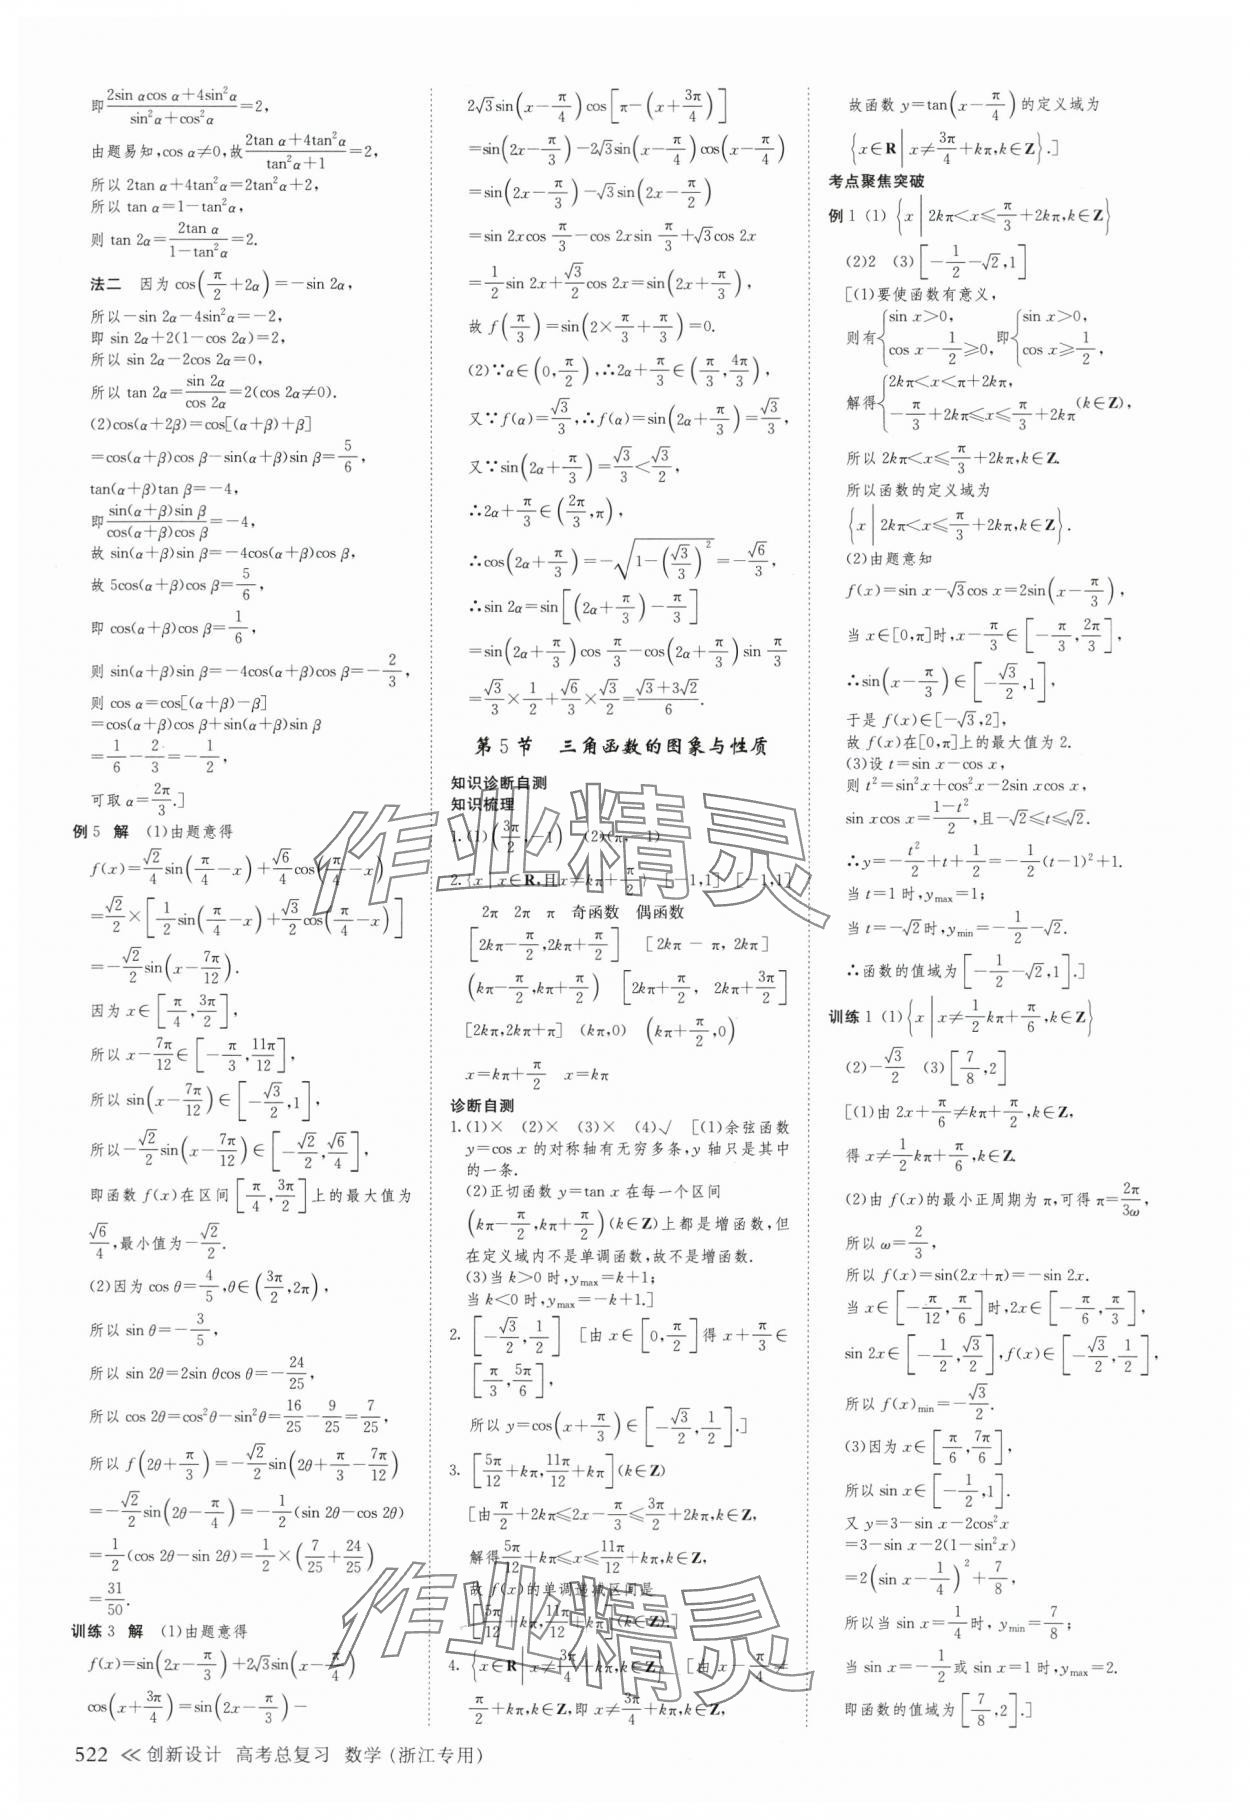 即(2sin αcos α+4sin²α)/(sin²α+cos²α)=2,
由题易知,cos α≠0,故(2tan α+4tan²α)/(tan²α+1)=2,
所以 2tan α+4tan²α=2tan²α+2,
所以 tan α=1-tan²α,
则 tan 2α=2tan α/(1-tan²α)=2.
法二 因为 cos(π/2+2α)=-sin 2α,
所以-sin 2α-4sin²α=-2,
即 sin 2α+2(1-cos 2α)=2,
所以 sin 2α-2cos 2α=0,
所以 tan 2α=sin 2α/cos 2α=2(cos 2α≠0).
(2)cos(α+2β)=cos[(α+β)+β]
=cos(α+β)cos β-sin(α+β)sin β=5/6,
tan(α+β)tan β=-4,
即sin(α+β)sin β/cos(α+β)cos β=-4,
故 sin(α+β)sin β=-4cos(α+β)cos β,
故 5cos(α+β)cos β=5/6,
即 cos(α+β)cos β=1/6,
则 sin(α+β)sin β=-4cos(α+β)cos β=-2/3,
则 cos α=cos[(α+β)-β]
=cos(α+β)cos β+sin(α+β)sin β
=1/6-2/3=-1/2,
可取 α=2π/3.]
例 5 解 (1)由题意得
f(x)=√2/4 sin(π/4-x)+√6/4 cos(π/4-x)
=√2/2×[1/2 sin(π/4-x)+√3/2 cos(π/4-x)]
=-√2/2 sin(x-7π/12).
因为 x∈[π/4,3π/2],
所以 x-7π/12∈[-π/3,11π/12],
所以 sin(x-7π/12)∈[-√3/2,1],
所以-√2/2 sin(x-7π/12)∈[-√2/2,√6/4],
即函数 f(x)在区间[π/4,3π/2]上的最大值为
√6/4,最小值为-√2/2.
(2)因为 cos θ=4/5,θ∈(3π/2,2π),
所以 sin θ=-3/5,
所以 sin 2θ=2sin θcos θ=-24/25,
所以 cos 2θ=cos²θ-sin²θ=16/25-9/25=7/25,
所以 f(2θ+π/3)=-√2/2 sin(2θ+π/3-7π/12)
=-√2/2 sin(2θ-π/4)=-1/2(sin 2θ-cos 2θ)
=1/2(cos 2θ-sin 2θ)=1/2×(7/25+24/25)
=31/50.
训练 3 解 (1)由题意得
f(x)=sin(2x-π/3)+2√3sin(x-π/4)
cos(x+3π/4)=sin(2x-π/3)-
2√3sin(x-π/4)cos[π-(x+3π/4)]
=sin(2x-π/3)-2√3sin(x-π/4)cos(x-π/4)
=sin(2x-π/3)-√3sin(2x-π/2)
=sin 2xcos π/3-cos 2xsin π/3+√3cos 2x
=1/2 sin 2x+√3/2 cos 2x=sin(2x+π/3),
故 f(π/3)=sin(2×π/3+π/3)=0.
(2)∵α∈(0,π/2),∴2α+π/3∈(π/3,4π/3),
又∵f(α)=√3/3,∴f(α)=sin(2α+π/3)=√3/3,
又∵sin(2α+π/3)=√3/3<√3/2,
∴2α+π/3∈(2π/3,π),
∴cos(2α+π/3)=-√(1-(√3/3)²)=-√6/3,
∴sin 2α=sin[(2α+π/3)-π/3]
=sin(2α+π/3)cos π/3-cos(2α+π/3)sin π/3
=√3/3×1/2+√6/3×√3/2=(√3+3√2)/6.
第 5 节 三角函数的图象与性质
知识诊断自测
知识梳理
1.(1)(3π/2,-1) (2)(π,-1)
2.{x|x∈R,且x≠kπ+π/2} [-1,1] [-1,1]
2π 2π π 奇函数 偶函数
[2kπ-π/2,2kπ+π/2] [2kπ-π,2kπ]
(kπ-π/2,kπ+π/2) [2kπ+π/2,2kπ+3π/2]
[2kπ,2kπ+π] (kπ,0) (kπ+π/2,0)
x=kπ+π/2 x=kπ
诊断自测
1.(1)× (2)× (3)× (4)√ [(1)余弦函数
y=cos x 的对称轴有无穷多条,y 轴只是其中
的一条.
(2)正切函数 y=tan x 在每一个区间
(kπ-π/2,kπ+π/2)(k∈Z)上都是增函数,但
在定义域内不是单调函数,故不是增函数.
(3)当 k>0 时,ymax=k+1;
当 k<0 时,ymax=-k+1.]
2. [-√3/2,1/2] [由 x∈[0,π/2]得 x+π/3∈
[π/3,5π/6],
所以 y=cos(x+π/3)∈[-√3/2,1/2].]
3. [5π/12+kπ,11π/12+kπ](k∈Z)
[由π/2+2kπ≤2x-π/3≤3π/2+2kπ,k∈Z,
解得5π/12+kπ≤x≤11π/12+kπ,k∈Z,
故 f(x)的单调递减区间是
[5π/12+kπ,11π/12+kπ](k∈Z).]
4. {x∈R|x≠3π/4+kπ,k∈Z} [由 x-π/4≠
π/2+kπ,k∈Z,即 x≠3π/4+kπ,k∈Z,
故函数 y=tan(x-π/4)的定义域为
{x∈R|x≠3π/4+kπ,k∈Z}.]
考点聚焦突破
例 1 (1){x|2kπ<x≤π/3+2kπ,k∈Z}
(2)2 (3)[-1/2-√2,1]
[(1)要使函数有意义,
则有{sin x>0, cos x-1/2≥0,即{sin x>0, cos x≥1/2,
解得{2kπ<x<π+2kπ, -π/3+2kπ≤x≤π/3+2kπ(k∈Z),
所以 2kπ<x≤π/3+2kπ,k∈Z.
所以函数的定义域为
{x|2kπ<x≤π/3+2kπ,k∈Z}.
(2)由题意知
f(x)=sin x-√3cos x=2sin(x-π/3),
当 x∈[0,π]时,x-π/3∈[-π/3,2π/3],
∴sin(x-π/3)∈[-√3/2,1],
于是 f(x)∈[-√3,2],
故 f(x)在[0,π]上的最大值为 2.
(3)设 t=sin x-cos x,
则 t²=sin²x+cos²x-2sin xcos x,
sin xcos x=(1-t²)/2,且-√2≤t≤√2.
∴y=-t²/2+t+1/2=-1/2(t-1)²+1.
当 t=1 时,ymax=1;
当 t=-√2时,ymin=-1/2-√2.
∴函数的值域为[-1/2-√2,1].]
训练 1 (1){x|x≠1/2kπ+π/6,k∈Z}
(2)-√3/2 (3)[7/8,2]
[(1)由 2x+π/6≠kπ+π/2,k∈Z,
得 x≠1/2kπ+π/6,k∈Z.
(2)由 f(x)的最小正周期为 π,可得 π=2π/3ω,
所以 ω=2/3,
所以 f(x)=sin(2x+π)=-sin 2x.
当 x∈[-π/12,π/6]时,2x∈[-π/6,π/3],
sin 2x∈[-1/2,√3/2],f(x)∈[-√3/2,1/2],
所以 f(x)min=-√3/2.
(3)因为 x∈[π/6,7π/6],
所以 sin x∈[-1/2,1].
又 y=3-sin x-2cos²x
=3-sin x-2(1-sin²x)
=2(sin x-1/4)²+7/8,
所以当 sin x=1/4时,ymin=7/8;
当 sin x=-1/2或 sin x=1 时,ymax=2.
即函数的值域为[7/8,2].]
522 ≪ 创新设计 高考总复习 数学(浙江专用)
作业精灵
作业精灵